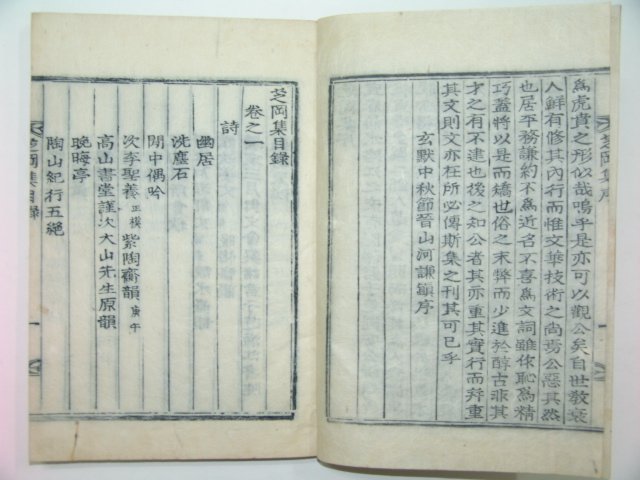 為虎賁之形似哉嗚乎是亦可以觀公矣自世敎衰
人鮮有修其內行而惟文華技術之尙夯公惡其然
也居平務謙約不為近名不喜為文詞雖俅恥為精
巧蓋將以是而矯也俗之末弊而少進於醇古非其
才之有不逮也後之知公者其亦重其實行而辩重
其文則文亦在所必傳斯集之刊其可已乎
玄默中秋節晉山河謙鎭序
芝岡集序
芝岡集目錄
卷之一
詩
幽居
洗塵石
閒中偶吟
次李聖養正模紫陶齋韻庚午
高山書堂謹次大山先生原韻
晩晦亭
陶山紀行五絕
芝岡集目錄
一